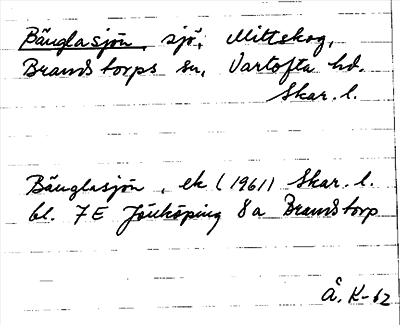 Bänglasjön sjö, Mittskog,
Brandstorps sn, Vartofta hd.
Skar. l.
Bänglasjön, ek (1961) Skar. l.
bl. 7E Jönköping 8a Brandstorp
Å. K-62